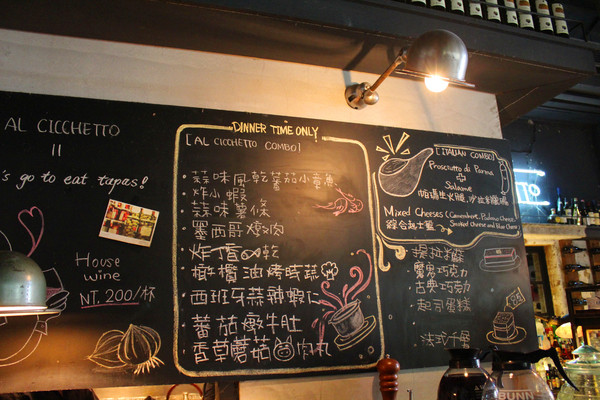 AL CICCHETTO
=
's go to eat tapas!
House
wine
NT. 200/杯
DINNER TIME ONLY
[AL CICCHETTO COMBO]
·蒜味風乾蕃茄小章魚
·炸小蝦
·蒜味薯條
·墨西哥燉肉
·炸 乾
·橄欖油烤時蔬
·西班牙蒜辣蝦仁
·蕃茄燉牛肚
·香草蘑菇 肉丸
[ITALIAN COMBO]
Prosciutto di Parma
&
Salame
帕瑪生火腿, 沙拉米臘腸
Mixed Cheeses (Camembert,
綜合起士盤 Smoked Cheese and Blue Cheese)
·提拉米蘇
·魔鬼巧克力
·古典巧克力
·起司蛋糕
·法式千層
BUNN